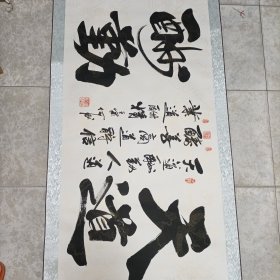 天道
酬勤
天道酬勤人道
酬善商道酬信
業道酬精